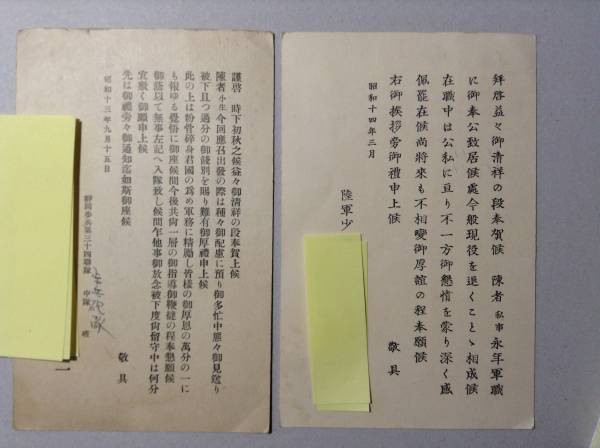 拜啓益々御清祥の段奉賀候　陳者私事永年軍職
に御奉公致居候處今般現役を退くことゝ相成候
在職中は公私に亘り不一方御懇情を蒙り深く感
佩罷在候尚將來も不相變御厚誼の程奉願候
右御挨拶旁御禮申上候
敬具
昭和十四年三月
陸軍少
謹啓　時下初秋之候益々御清祥の段奉賀上候
陳者小生今回應召出發の際は種々御配慮に預り御多忙中態々御見送り
被下且つ過分の御餞別を賜り難有御厚禮申上候
此の上は粉骨碎身君國の爲め軍務に精勵し皆樣の御厚恩の萬分の一に
も報ゆる覺悟に御座候間今後共尙一層の御指導御鞭撻の程奉懇願候
御蔭以て無事左記へ入隊致し候間乍他事御放念被下度尙留守中は何分
宜敷く御願申上候
先は御禮旁々御通知迄如斯御座候
敬具
昭和十三年九月十五日
靜岡步兵第三十四聯隊　中隊　班